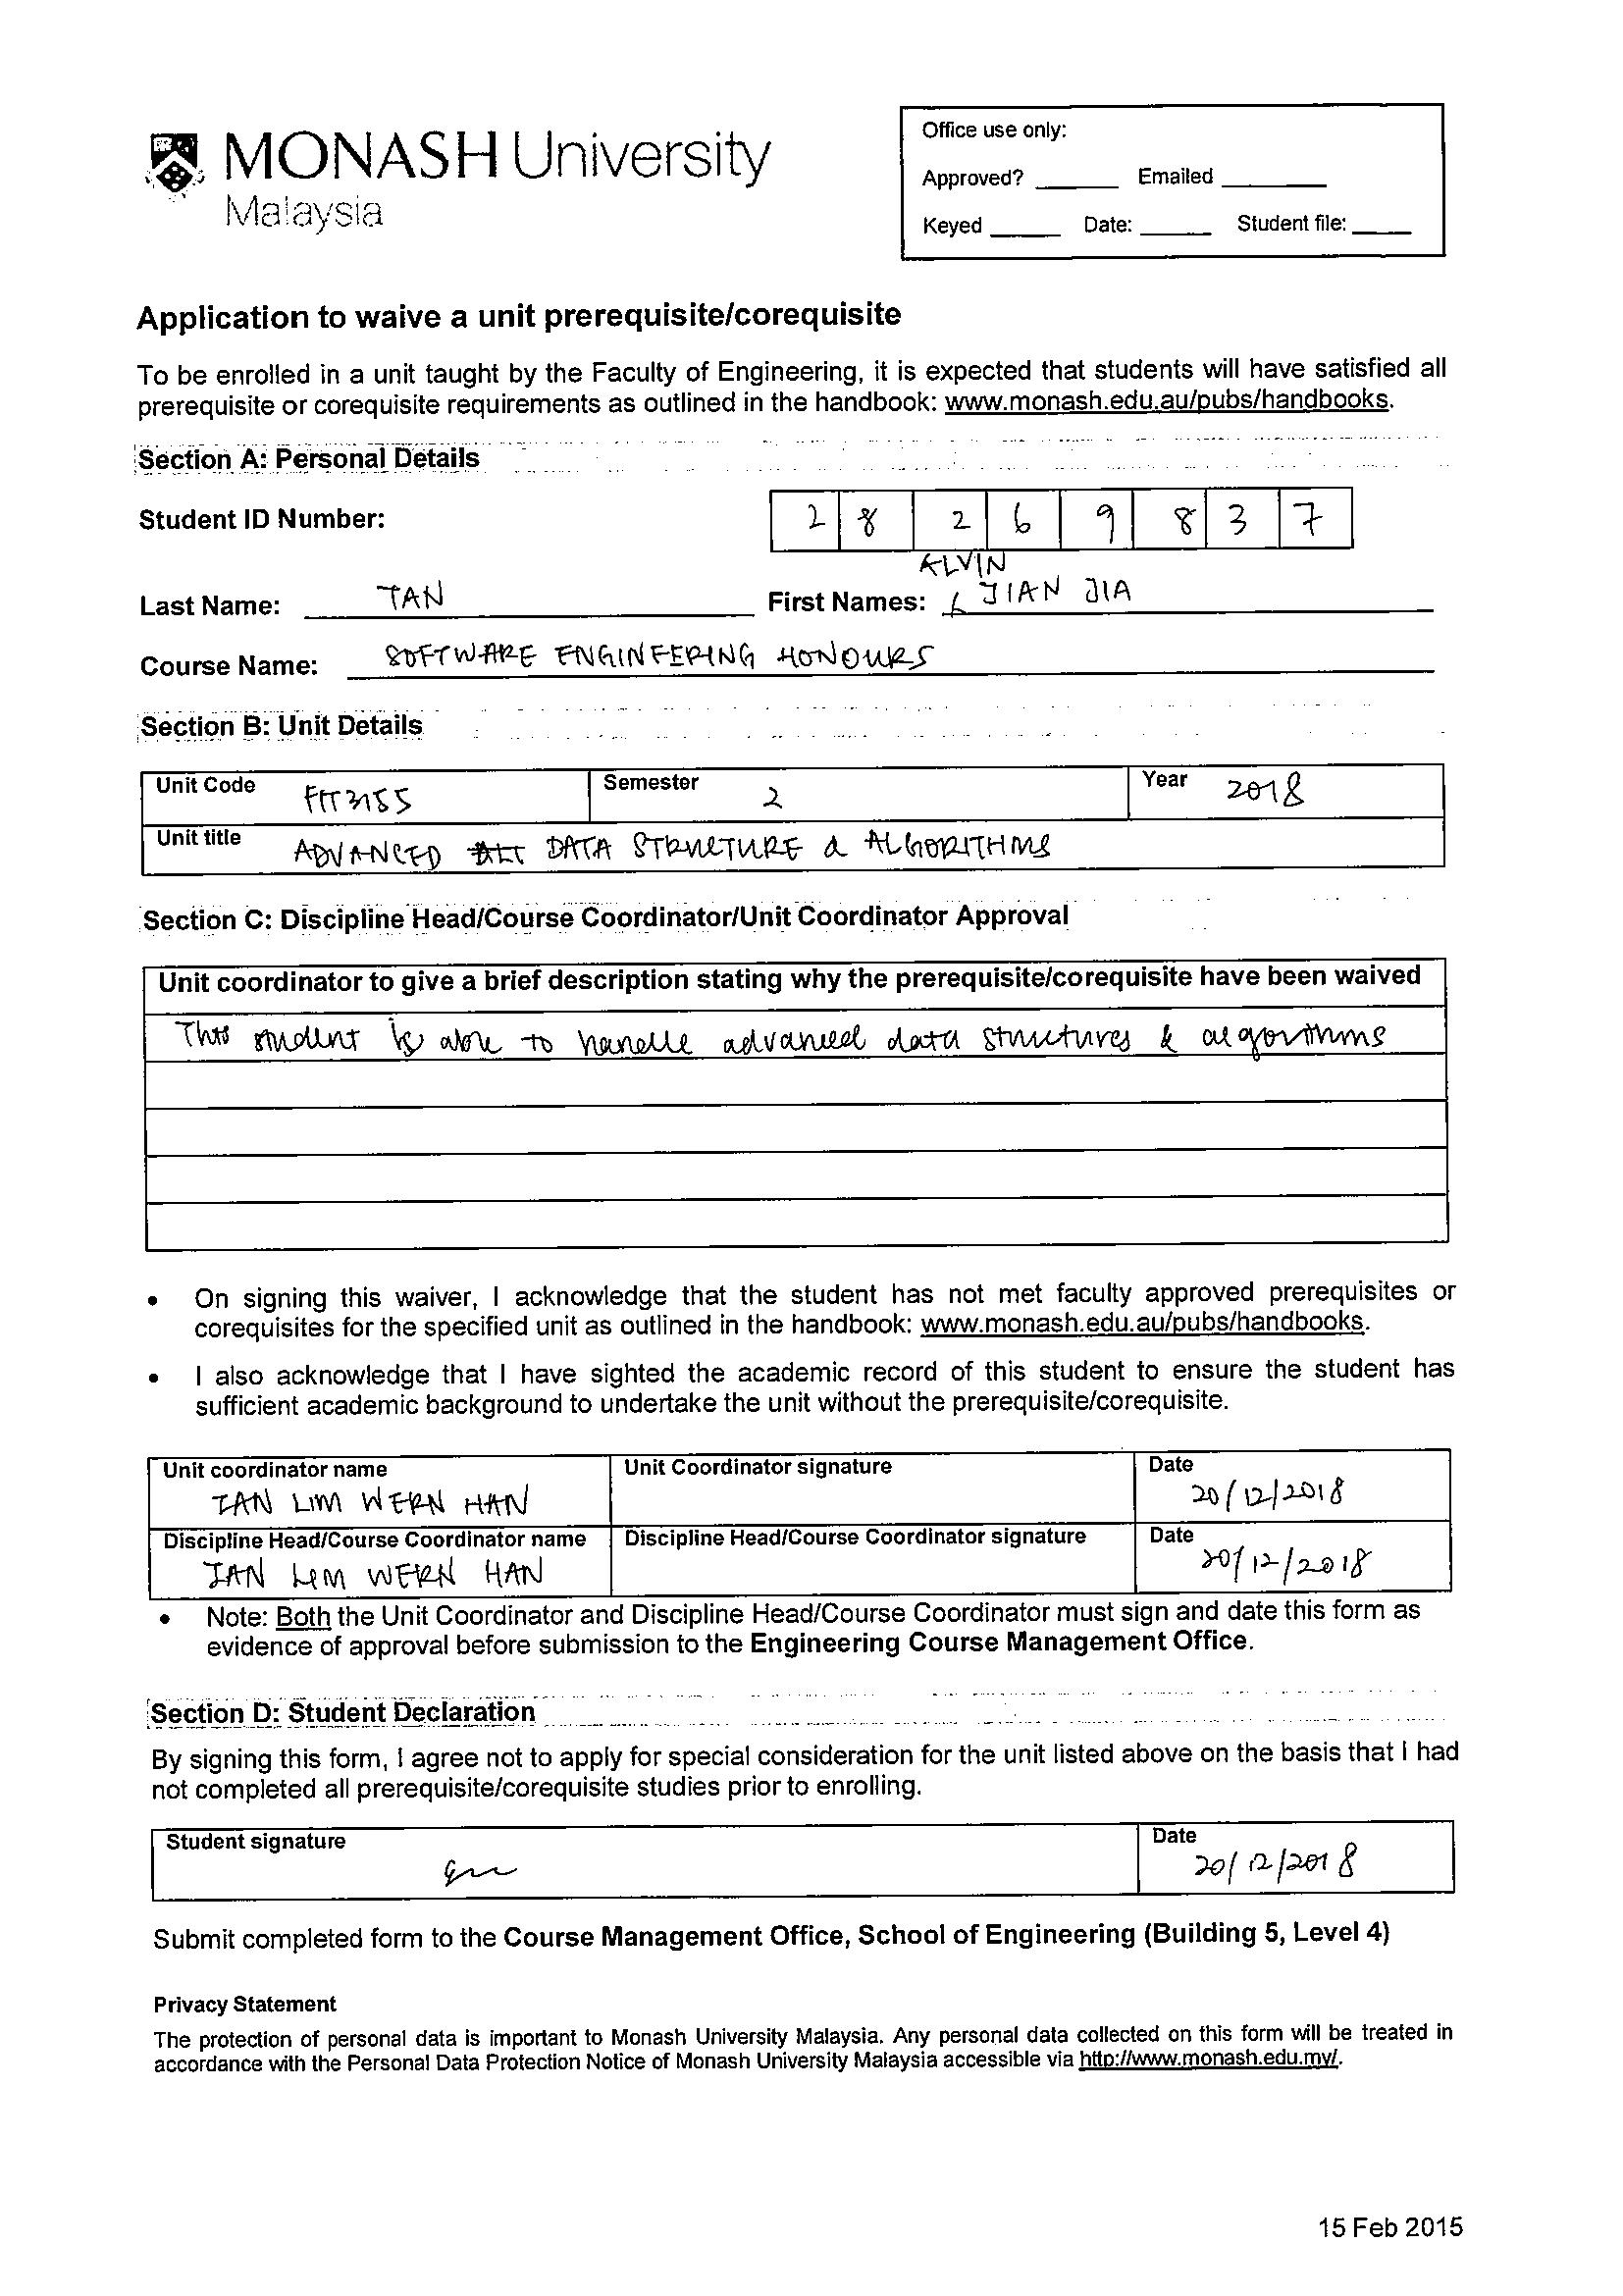 MONASH University
Malaysia
Office use only:
Approved? ______ Emailed ______
Keyed ______ Date: ______ Student file: ______
Application to waive a unit prerequisite/corequisite
To be enrolled in a unit taught by the Faculty of Engineering, it is expected that students will have satisfied all
prerequisite or corequisite requirements as outlined in the handbook: www.monash.edu.au/pubs/handbooks.
Section A: Personal Details
Student ID Number: 2 8 2 6 9 8 3 7
KLVIN
Last Name: TAN First Names: JIAN JIA
Course Name: SOFTWARE ENGINEERING HONOURS
Section B: Unit Details
Unit Code FIT3155 Semester 2 Year 2018
Unit title ADVANCED DATA STRUCTURE & ALGORITHMS
Section C: Discipline Head/Course Coordinator/Unit Coordinator Approval
Unit coordinator to give a brief description stating why the prerequisite/corequisite have been waived
This student is able to handle advanced data structures & algorithms
• On signing this waiver, I acknowledge that the student has not met faculty approved prerequisites or
corequisites for the specified unit as outlined in the handbook: www.monash.edu.au/pubs/handbooks.
• I also acknowledge that I have sighted the academic record of this student to ensure the student has
sufficient academic background to undertake the unit without the prerequisite/corequisite.
Unit coordinator name Unit Coordinator signature Date
IAN LIM WERN HAN 20/12/2018
Discipline Head/Course Coordinator name Discipline Head/Course Coordinator signature Date
IAN LIM WERN HAN 20/12/2018
• Note: Both the Unit Coordinator and Discipline Head/Course Coordinator must sign and date this form as
evidence of approval before submission to the Engineering Course Management Office.
Section D: Student Declaration
By signing this form, I agree not to apply for special consideration for the unit listed above on the basis that I had
not completed all prerequisite/corequisite studies prior to enrolling.
Student signature Date
20/12/2018
Submit completed form to the Course Management Office, School of Engineering (Building 5, Level 4)
Privacy Statement
The protection of personal data is important to Monash University Malaysia. Any personal data collected on this form will be treated in
accordance with the Personal Data Protection Notice of Monash University Malaysia accessible via http://www.monash.edu.my/.
15 Feb 2015